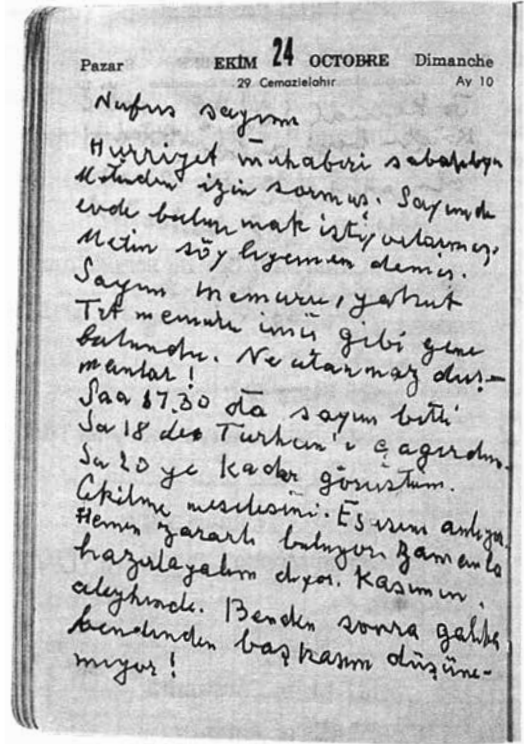 Pazar EKİM 24 OCTOBRE Dimanche
29 Cemazielahır Ay 10
Nufus sayımı
Hürriyet muhabiri sabahleyin
Metinden izin sormuş. Sayımda
evde bulunmak istiyorlarmış.
Metin söyliyemem demiş.
Sayım memuru, yahut
Trt memuru imiş gibi gene
bulundu. Ne utanmaz düş-
manlar!
Saa 17.30 da sayım bitti
Sa 18 de Turhan'ı çağırdım.
Sa 20 ye kadar görüştüm.
Çekilme meselesini. Esasını anlıyor.
Hemen zararlı buluyor. Zamanla
hazırlayalım diyor. Kasımın
aleyhinde. Benden sonra galiba
kendinden başkasını düşüne-
miyor!